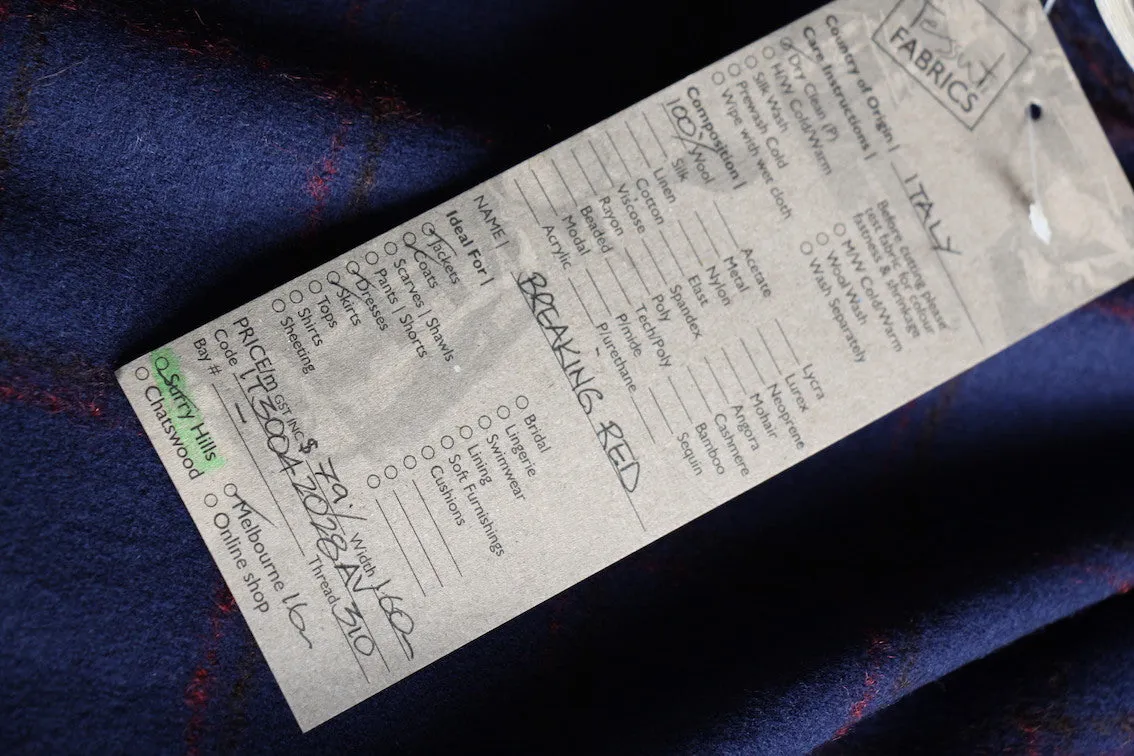 Tessuti
FABRICS
Country of Origin | ITALY
Care Instructions |
Dry Clean (P)
H/W Cold/Warm
Silk Wash
Prewash Cold
Wipe with wet cloth
Before cutting please
test fabric for colour
fastness & shrinkage
M/W Cold/Warm
Wool Wash
Wash Separately
Composition |
100% Wool
Silk
Linen
Cotton
Viscose
Rayon
Beaded
Modal
Acrylic
Acetate
Metal
Nylon
Elast
Spandex
Poly
Tech/Poly
P/mide
P/urethane
Lycra
Lurex
Neoprene
Mohair
Angora
Cashmere
Bamboo
Sequin
NAME | BREAKING RED
Ideal For |
Jackets
Coats
Scarves | Shawls
Pants | Shorts
Dresses
Skirts
Tops
Shirts
Sheeting
Bridal
Lingerie
Swimwear
Lining
Soft Furnishings
Cushions
PRICE/m GST INC $ 79./ Width 160
Code 17300A2028AV Thread 310
Bay # —
Surry Hills
Chatswood
Melbourne 16m
Online shop